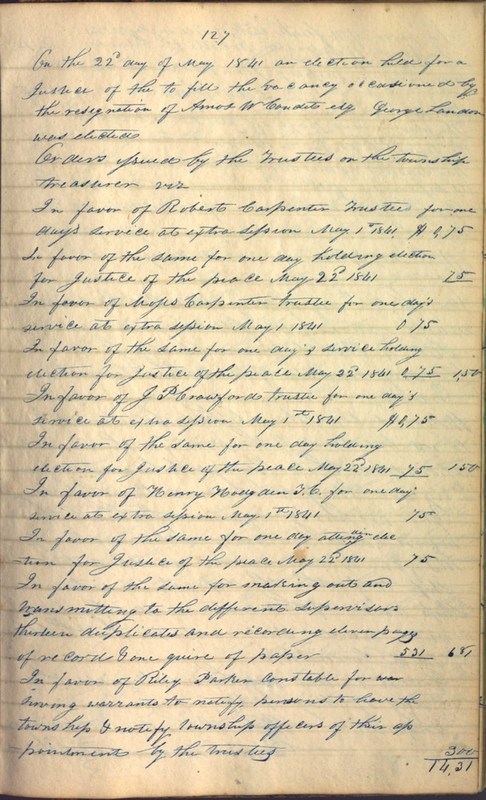 127
On the 22d day of May 1841 an election held for a
Justice of the to fill the vacancy occasioned by
the resignation of Amos W Condits esq George Landon
was elected
Orders issued by the Trustees on the township
treasurer viz
In favor of Robert Carpenter Trustee for one
day's service at extra session May 1st 1841 $ 0,75
In favor of the same for one day holding election
for Justice of the peace May 22d 1841 75
In favor of Moses Carpenter Trustee for one day's
service at extra session May 1 1841 0 75
In favor of the same for one day's service holding
election for Justice of the peace May 22d 1841 0,75 1,50
In favor of J P Crawford trustee for one day's
service at extra session May 1st 1841 $0,75
In favor of the same for one day holding
election for Justice of the peace May 22d 1841 75 150
In favor of Henry Hodgden T.C. for one day's
service at extra session May 1st 1841 75
In favor of the same for one day attending elec
tion for Justice of the peace May 22d 1841 75
In favor of the same for making out and
transmitting to the different supervisors
thirteen duplicates and recording eleven pages
of record & one quire of paper 531 681
In favor of Riley Parker Constable for
serving warrants to notify persons to leave the
township & notify township officers of their ap
pointments by the trustees 300
14,31